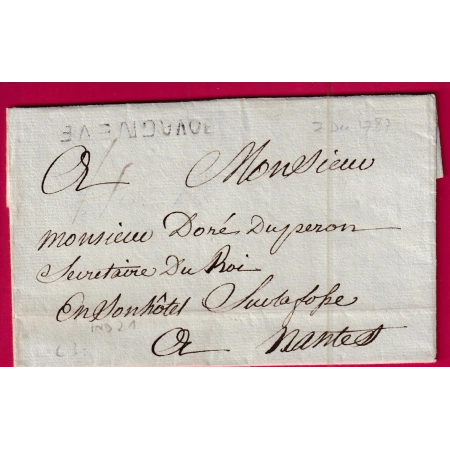 JOUAGNEVE
2 Dec 1787
a Monsieur
monsieur Doré Duperon
Secretaire Du Roi
En son hôtel Sur la fosse
IND 21
a Nantes